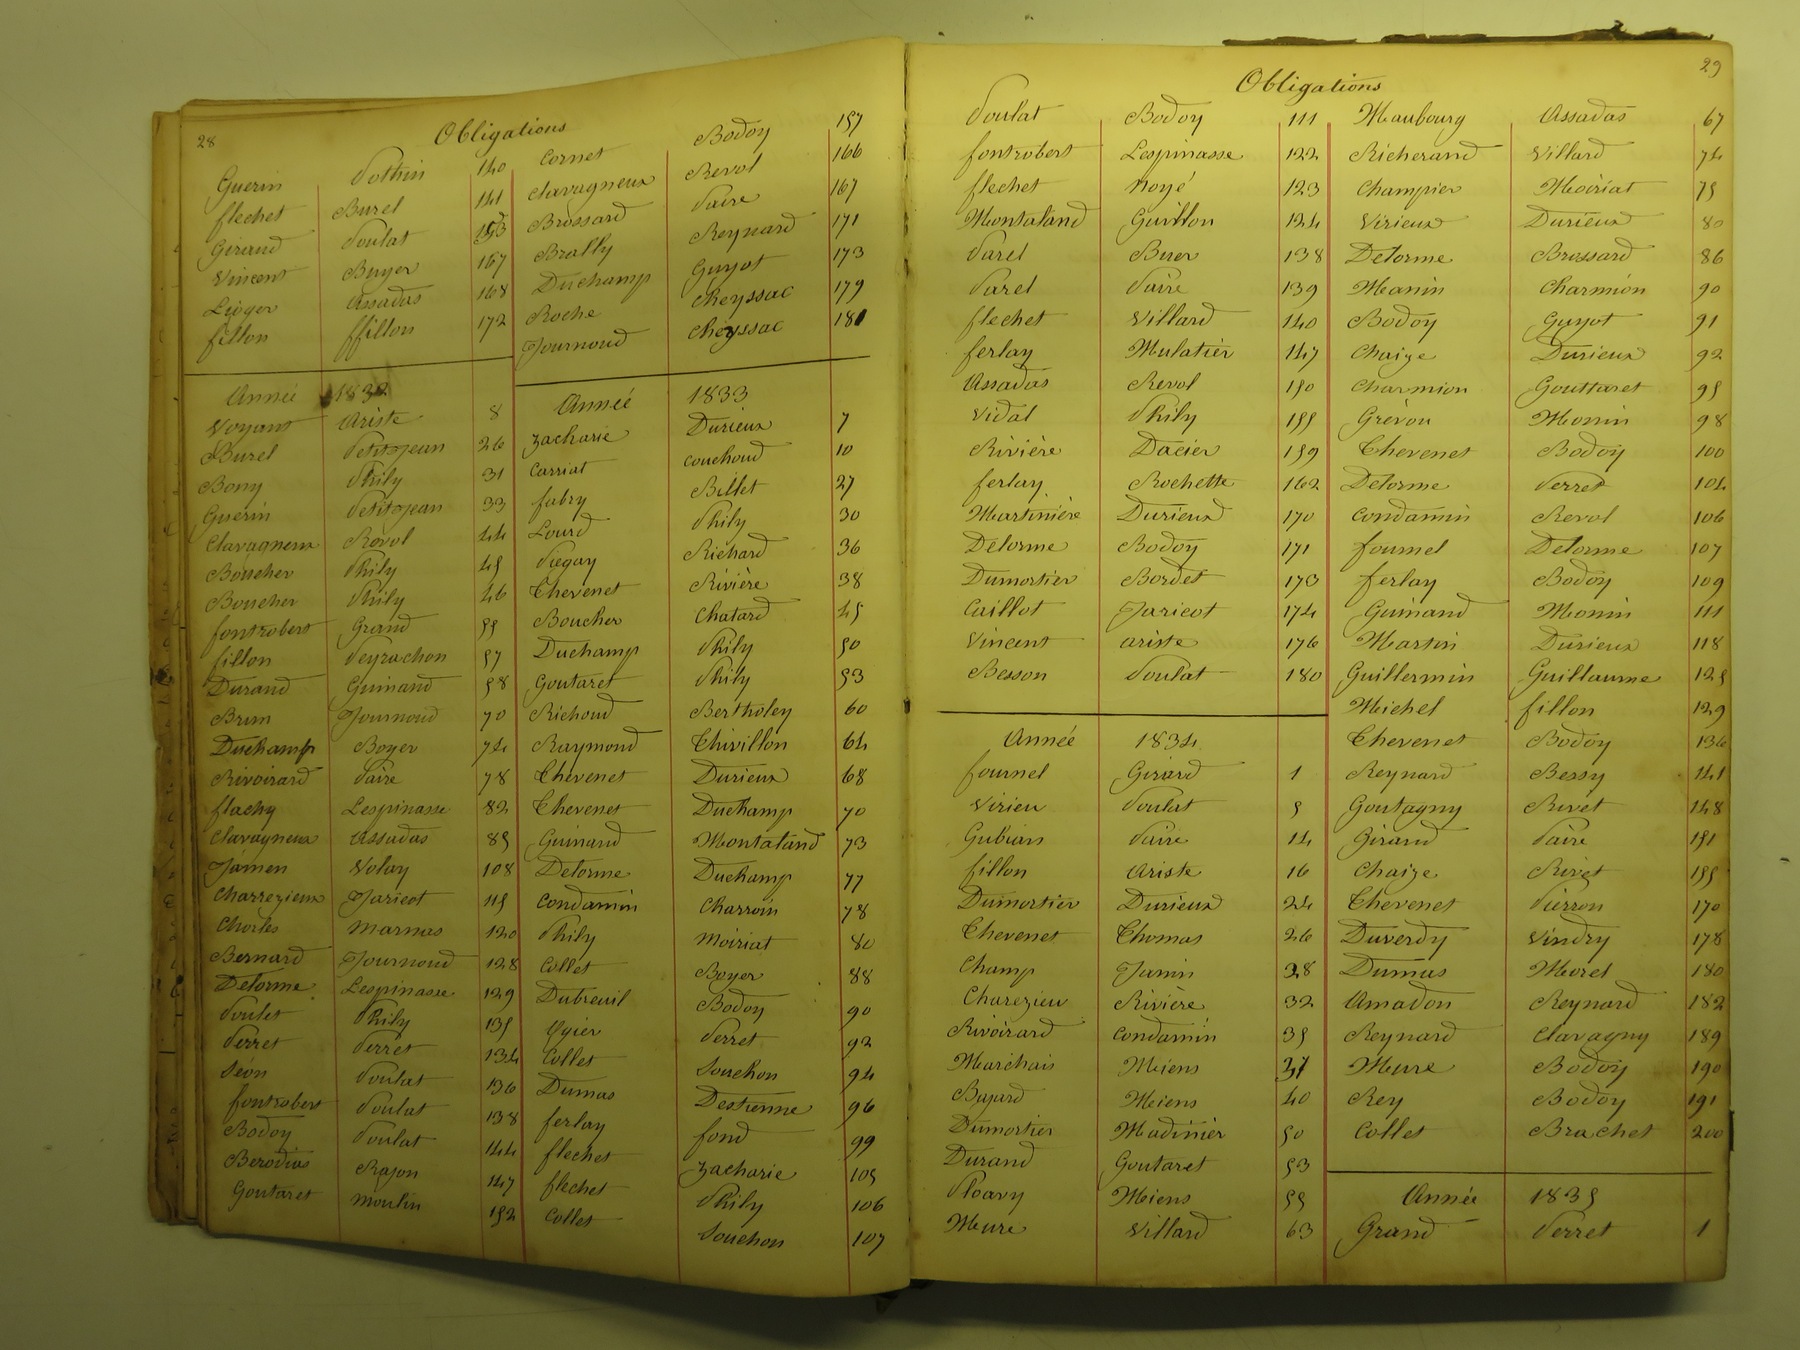 28
Obligations
Guerin Pothin 140
flechet Burel 141
Giraud Poulat 153
Vincent Buyer 167
Lieger Assadas 168
fillon ffillon 172
Année 1832
Voyant Ariste 8
Burel Petitjean 26
Bony Phily 31
Guerin Petitjean 33
Clavagneux Revol 44
Boucher Phily 45
Boucher Phily 46
fontrobert Grand 55
fillon Peyrachon 57
Durand Guinand 58
Brun Journoud 70
Duchamp Boyer 74
Rivoirard Paire 78
flachy Lespinasse 82
Clavagneux Assadas 85
Jamen Volay 108
Charrezieux Jaricot 115
Charles Marnas 120
Bernard Journoud 128
Delorme Lespinasse 129
Poulet Phily 135
Perret Perret 134
Séon Poulat 136
fontrobert Poulat 138
Bodoy Poulat 144
Berodias Rajon 147
Goutaret Moulin 152
Cornet Bodoy 157
Clavagneux Revol 166
Brossard Paire 167
Brally Reynard 171
Duchamp Guyot 173
Roche Cheyssac 179
Journoud Cheyssac 181
Année 1833
Zacharie Durieux 7
Carriat Couchoud 10
fabry Billet 27
Lourd Phily 30
Piegay Richard 36
Chevenet Rivière 38
Boucher Chatard 45
Duchamp Phily 50
Goutaret Phily 53
Richoud Bertholey 60
Raymond Chivillon 64
Chevenet Durieux 68
Chevenet Duchamp 70
Guinand Montaland 73
Delorme Duchamp 77
Condamin Charroin 78
Phily Moiriat 80
Collet Boyer 88
Dubreuil Bodoy 90
Ogier Perret 92
Collet Souchon 94
Dumas Destienne 96
ferlay fond 99
flechet Zacharie 105
flechet Phily 106
Collet Souchon 107
29
Obligations
Poulat Bodoy 111
fontrobert Lespinasse 122
flechet Noyé 123
Montaland Guillon 124
Parel Buer 138
Parel Paire 139
flechet Villard 140
ferlay Mulatier 147
Assadas Revol 150
Vidal Phily 155
Rivière Dacier 159
ferlay Rochette 162
Martinière Durieux 170
Delorme Bodoy 171
Dumortier Bordet 173
Caillot Jaricot 174
Vincent Ariste 176
Besson Poulat 180
Année 1834
fournel Girard 1
Virieu Poulat 5
Gubian Paire 14
fillon Ariste 16
Dumortier Durieux 24
Chevenet Thomas 26
Champ Janin 28
Charezieu Rivière 32
Rivoirard Condamin 35
Marchais Meiens 37
Bajard Meiens 40
Dumortier Madinier 50
Durand Goutaret 53
Ploavy Meiens 55
Meure Villard 63
Maubourg Assadas 67
Richerand Villard 74
Champier Moiriat 75
Virieux Durieux 80
Delorme Brossard 86
Manin Charmion 90
Bodoy Guyot 91
Chaize Durieux 92
Charmion Gouttaret 95
Grévou Monin 98
Chevenet Bodoy 100
Delorme Perret 104
Condamin Revol 106
fournel Delorme 107
ferlay Bodoy 109
Guinand Monin 111
Martin Durieux 118
Guillermin Guillaume 125
Michel fillon 129
Chevenet Bodoy 136
Reynard Bessy 141
Goutagny Rivet 148
Girand Paire 151
Chaize Rivet 155
Chevenet Pierron 170
Duverdy Vindry 178
Dumas Morel 180
Amadon Reynard 182
Reynard Clavagny 189
Meure Bodoy 190
Rey Bodoy 191
Collet Brachet 200
Année 1835
Grand Perret 1